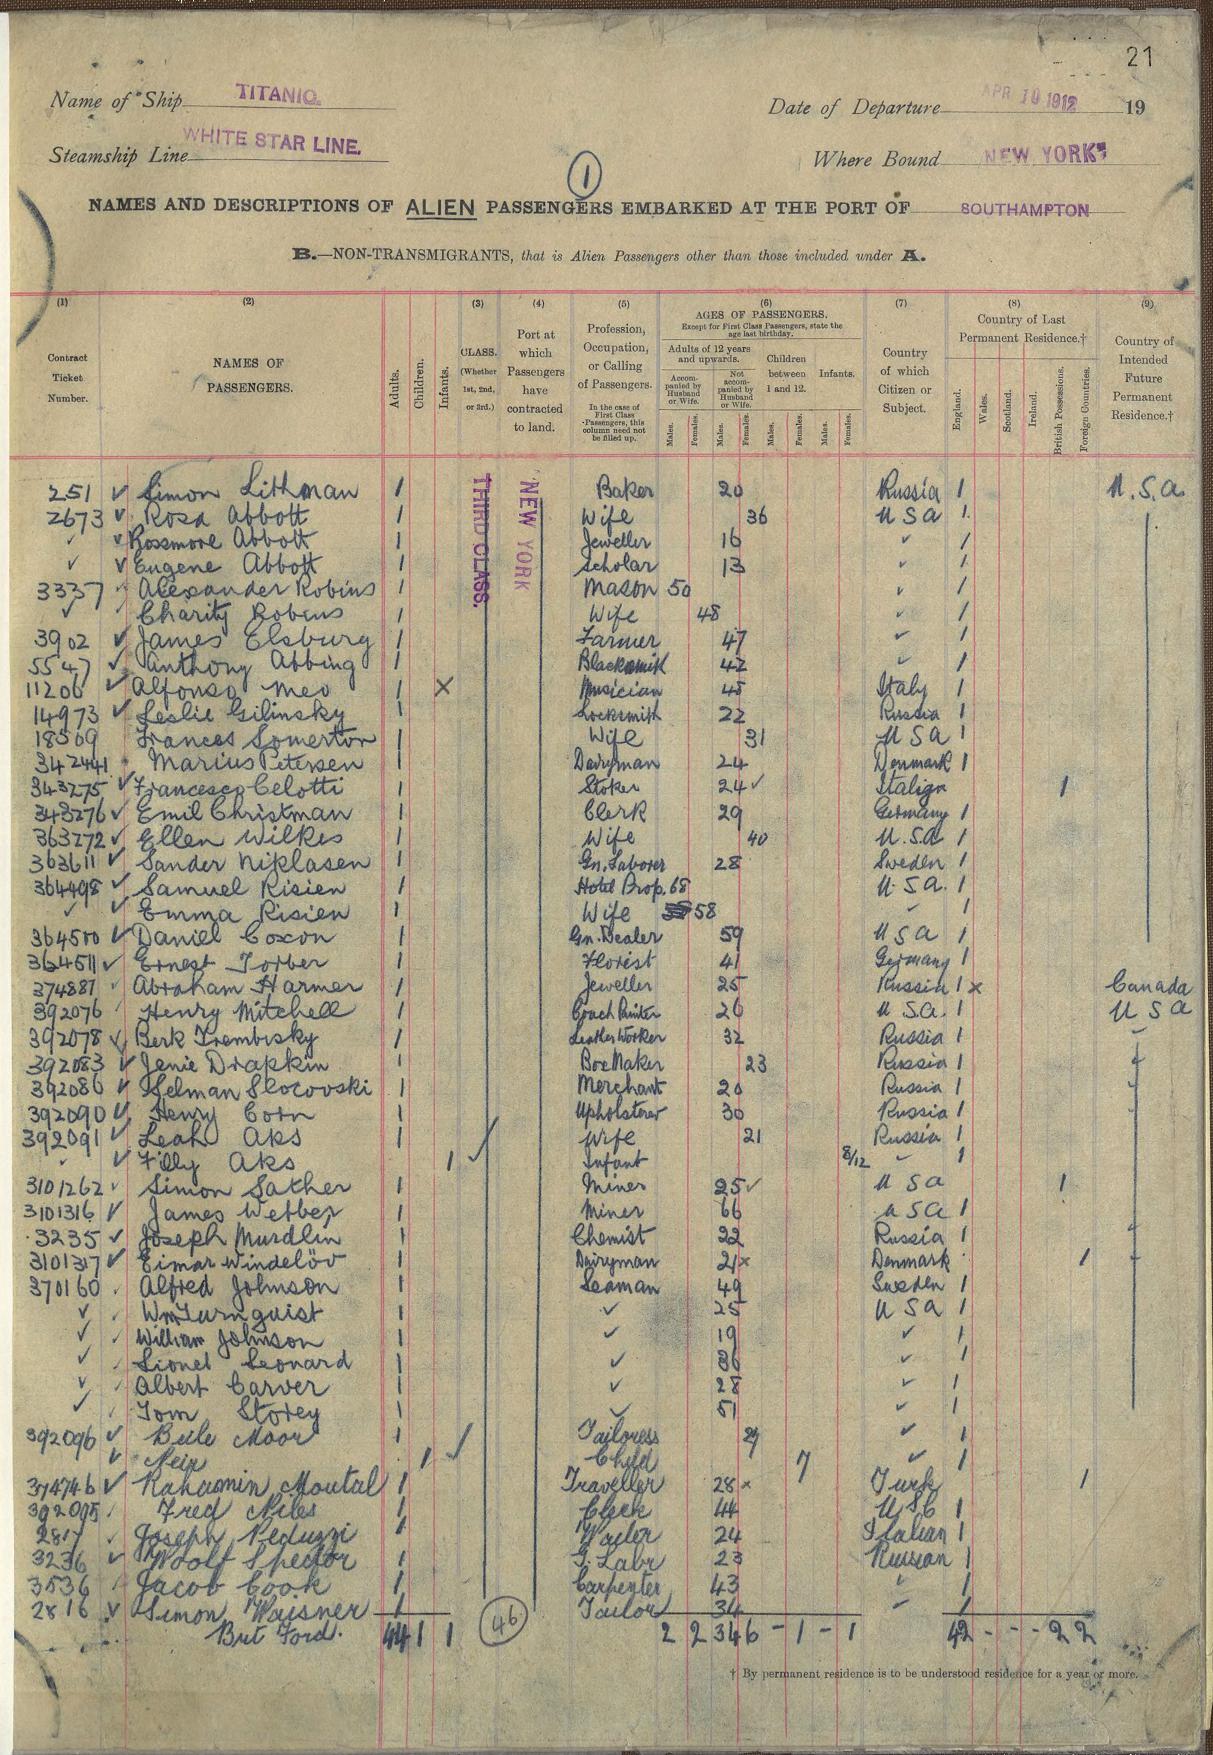 21
Name of Ship TITANIC.
Date of Departure APR 10 1912 19
Steamship Line WHITE STAR LINE.
Where Bound NEW YORK
1
NAMES AND DESCRIPTIONS OF ALIEN PASSENGERS EMBARKED AT THE PORT OF SOUTHAMPTON
B.—NON-TRANSMIGRANTS, that is Alien Passengers other than those included under A.
(1) (2) (3) (4) (5) (6) (7) (8) (9)
Contract Ticket Number.
NAMES OF PASSENGERS.
Adults.
Children.
Infants.
CLASS. (Whether 1st, 2nd, or 3rd.)
Port at which Passengers have contracted to land.
Profession, Occupation, or Calling of Passengers.
In the case of First Class Passengers, this column need not be filled up.
AGES OF PASSENGERS.
Except for First Class Passengers, state the age last birthday.
Adults of 12 years and upwards.
Accompanied by Husband or Wife.
Not accompanied by Husband or Wife.
Children between 1 and 12.
Infants.
Males. Females. Males. Females. Males. Females. Males. Females.
Country of which Citizen or Subject.
Country of Last Permanent Residence.†
England. Wales. Scotland. Ireland. British Possessions. Foreign Countries.
Country of Intended Future Permanent Residence.†
THIRD CLASS.
NEW YORK
251 ✓ Simon Lithman 1 Baker 20 Russia 1 U.S.A.
2673 ✓ Rosa Abbott 1 Wife 36 U S A 1
✓ ✓ Rossmore Abbott 1 Jeweller 16 ✓ 1
✓ ✓ Eugene Abbott 1 Scholar 13 ✓ 1
3337 ✓ Alexander Robins 1 Mason 50 ✓ 1
✓ Charity Robins 1 Wife 48 ✓ 1
3902 ✓ James Elsburg 1 Farmer 47 ✓ 1
5547 ✓ Anthony Abbing 1 Blacksmith 42 ✓ 1
11206 ✓ Alfonso Meo 1 X Musician 48 Italy 1
14973 ✓ Leslie Gilinsky 1 Locksmith 22 Russia 1
18509 Frances Somerton 1 Wife 31 U S A 1
342441 Marius Petersen 1 Dairyman 24 Denmark 1
343275 ✓ Francesco Celotti 1 Stoker 24 ✓ Italian 1
343276 ✓ Emil Christman 1 Clerk 29 Germany 1
363272 ✓ Ellen Wilkes 1 Wife 40 U.S.A 1
363611 ✓ Sander Niklasen 1 Gn. Laborer 28 Sweden 1
364498 ✓ Samuel Risien 1 Hotel Prop. 68 U.S.A. 1
✓ Emma Risien 1 Wife 58 ✓ 1
364500 ✓ Daniel Coxon 1 Gn. Dealer 59 U S A 1
364511 ✓ Ernest Torber 1 Florist 41 Germany 1
374887 ✓ Abraham Harmer 1 Jeweller 25 Russia 1 x Canada
392076 ✓ Henry Mitchell 1 Coach Painter 26 U.S.A. 1 U S A
392078 ✓ Berk Trembisky 1 Leather Worker 32 Russia 1
392083 ✓ Jenie Drapkin 1 Box Maker 23 Russia 1
392086 ✓ Selman Slocovski 1 Merchant 20 Russia 1
392090 ✓ Henry Corn 1 Upholsterer 30 Russia 1
392091 ✓ Leah Aks 1 ✓ Wife 21 Russia 1
✓ ✓ Filly Aks 1 Infant 8/12 ✓ 1
3101262 ✓ Simon Sather 1 Miner 25 ✓ U S A 1
3101316 ✓ James Webber 1 Miner 66 U S A 1
3235 ✓ Joseph Murdlin 1 Chemist 22 Russia 1
3101317 ✓ Eimar Windelöv 1 Dairyman 21 x Denmark 1
370160 ✓ Alfred Johnson 1 Seaman 49 Sweden 1
✓ ✓ Wm Turnquist 1 ✓ 25 U S A 1
✓ ✓ William Johnson 1 ✓ 19 ✓ 1
✓ ✓ Lionel Leonard 1 ✓ 36 ✓ 1
✓ ✓ Albert Carver 1 ✓ 28 ✓ 1
✓ ✓ Tom Storey 1 ✓ 51 ✓ 1
392096 ✓ Beile Moor 1 ✓ Tailoress 29 ✓ 1
✓ Meir 1 ✓ Child 7 ✓ 1
374746 ✓ Rahamin Moutal 1 Traveller 28 x Turk 1
392095 ✓ Fred Niles 1 Clerk 44 1
2817 ✓ Joseph Peduzzi 1 24 Italian 1
3236 ✓ Woolf Spector 1 G. Labr 23 Russian 1
3536 ✓ Jacob Cook 1 Carpenter 43 ✓ 1
2816 ✓ Simon Waisner 1 Tailor 34 ✓ 1
44 1 1 46 2 2 34 6 - 1 - 1 42 - - - 2 2
† By permanent residence is to be understood residence for a year or more.